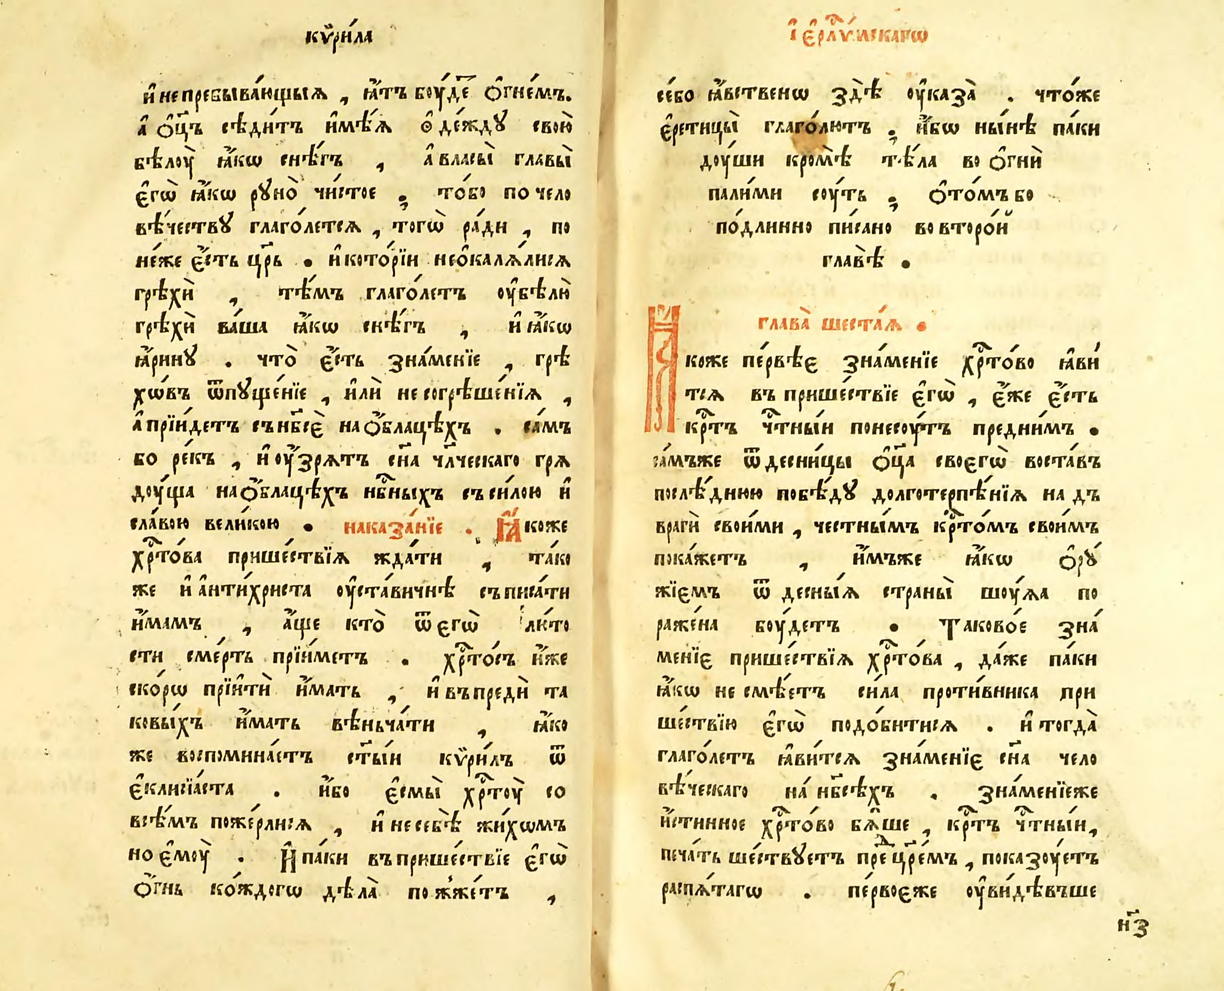 кѷри́ла
и҆ непребыва́ющыѧ , ꙗ҆́тъ боу́де ѻ҆гне́мъ.
а҆ ѻ҆ц҃ъ сѣди́тъ и҆мѣ́ѧ ѻ҆де́ждꙋ свою̀
бѣ́лоу ꙗ҆́кѡ снѣ́гъ , а҆ власы̀ главы̀
є҆гѡ̀ ꙗ҆́кѡ рꙋно̀ чи́стое ; то́бо по чело
вѣ́чествꙋ глаго́летсѧ , тогѡ̀ ра́ди , по
не́же є҆́сть цр҃ь . и҆ кото́рїи неѡ҆калѧ́лисѧ
грѣхѝ , тѣ́мъ глаго́летъ оу҆бѣлю̀
грѣхѝ ва́ша ꙗ҆́кѡ снѣ́гъ , и҆ ꙗ҆́кѡ
ꙗ҆́ринꙋ . что̀ є҆́сть зна́менїе , грѣ
хѡ́въ ѿпꙋще́нїе , и҆лѝ несогрѣше́нїѧ ,
а҆ прїи́детъ съ нб҃сѐ на ѻ҆́блацѣхъ . са́мъ
бо ре́къ , и҆ оу҆́зрѧтъ сн҃а чл҃ческаго грѧ
доу́ща на ѻ҆́блацѣхъ нб҃ныхъ съ си́лою и҆
сла́вою вели́кою . наказа́нїе . Ꙗ҆́коже
хрⷭ҇то́ва прише́ствїѧ жда́ти , та́ко
же и҆ а҆нти́христа оу҆ста́вичнѣ съписа́ти
и҆́мамъ , а҆́ще кто̀ ѿ є҆гѡ̀ лю́то
сти сме́рть прїи́метъ . хрⷭ҇то́съ и҆́же
ско́рѡ прїитѝ и҆́мать , и҆ въпредѝ та
ковы́хъ и҆́мать вѣнча́ти , ꙗ҆́ко
же воспомина́етъ ст҃ы́и кѷри́лъ ѿ
є҆клисїа́ста . и҆́бо є҆смы̀ хрⷭ҇тоу̀ со
всѣ́мъ поже́рлисѧ , и҆ не себѣ̀ жи́хомъ
но є҆моу̀ . И҆ па́ки въ прише́ствїе є҆гѡ̀
ѻ҆́гнь ко́ждогѡ дѣ́ла пожже́тъ ,
і҆ерⷭ҇ли́мскагѡ
се́бо ꙗ҆́вственѡ здѣ̀ оу҆каза̀ . что́же
є҆ретицы̀ глаго́лютъ ; и҆́бѡ ны́нѣ па́ки
доу́ши кромѣ̀ тѣ́ла во ѻ҆гнѝ
пали́ми соу́ть ; ѻ҆ то́мъ бо
по́длинно пи́сано во второ́й
главѣ̀ .
глава̀ шеста́ѧ .
Ꙗ҆́коже пе́рвѣе зна́менїе хрⷭ҇то́во ꙗ҆ви́
тсѧ въ прише́ствїе є҆гѡ̀ , є҆́же є҆́сть
крⷭ҇тъ чⷭ҇тны́и понесоу́тъ пред ни́мъ .
са́мъже ѿ десни́цы ѻ҆ц҃а своегѡ̀ воста́въ
послѣ́днюю побѣ́дꙋ долготерпѣ́нїѧ надъ
врагѝ свои́ми , че́стнымъ крⷭ҇то́мъ свои́мъ
пока́жетъ , и҆́мъже ꙗ҆́кѡ ѻ҆рꙋ́
жїемъ ѿ десны́ѧ страны̀ шоу́ѧ по
раже́на боу́детъ . Таково́е зна́
менїе прише́ствїѧ хрⷭ҇то́ва , да́же па́ки
ꙗ҆́кѡ не смѣ́етъ си́ла проти́вника при
ше́ствїю є҆гѡ̀ подо́битисѧ . и҆ тогда̀
глаго́летъ ꙗ҆ви́тсѧ зна́менїе сн҃а чело
вѣ́ческаго на нб҃сѣ́хъ . зна́менїеже
и҆́стинное хрⷭ҇то́во бѧ́ше , крⷭ҇тъ чⷭ҇тны́и,
печа́ть ше́ствꙋетъ пред цр҃е́мъ , показоу́етъ
распѧ́тагѡ . пе́рвоеже оу҆ви́дѣвъше
н҃з